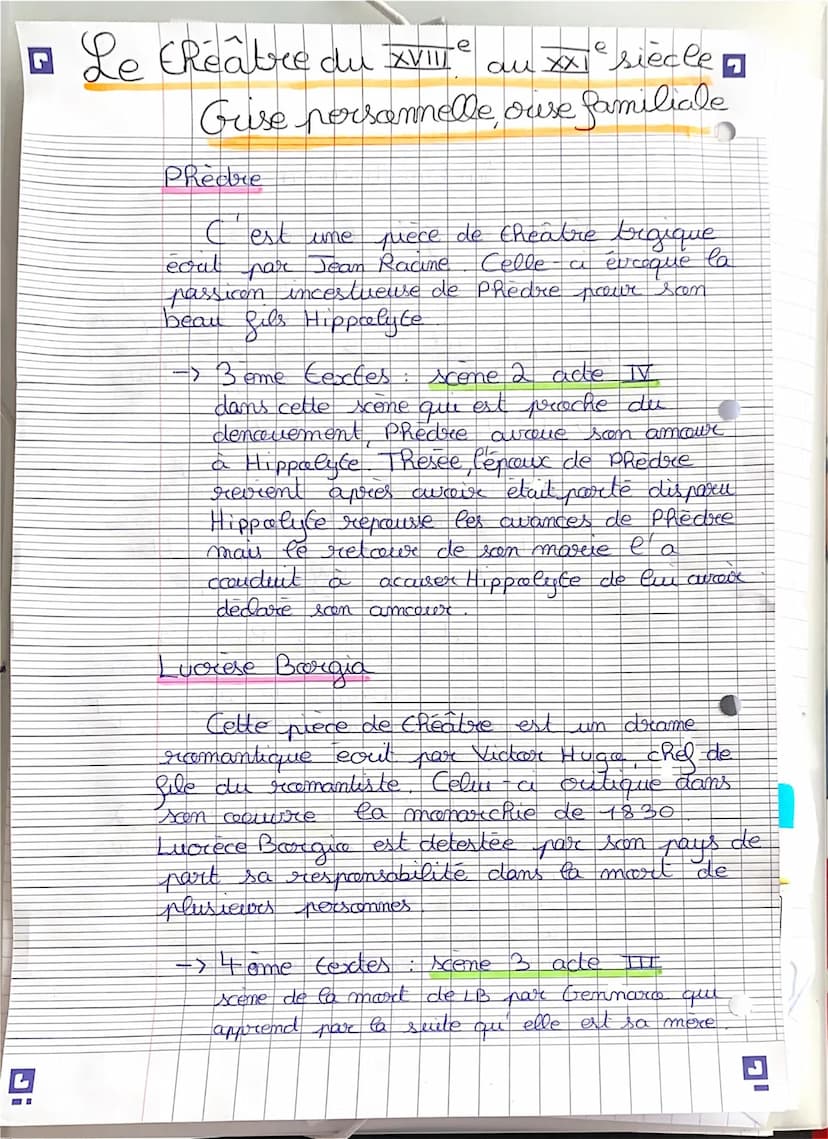 Le théâtre du XVIIIe au XXIe siècle
Crise personnelle, crise familiale
Phèdre
C'est une pièce de théâtre trgique
écrit par Jean Racine. Celle-ci évoque la
passion incestueuse de Phèdre pour son
beau fils Hippolyte
-> 3ème textes : scène 2 acte IV
dans cette scène qui est proche du
denouement, Phèdre avoue son amour
à Hippolyte. Thésée, l'époux de Phèdre
revient après avoir était porté disparu
Hippolyte repousse les avances de Phèdre
mais le retour de son marie l'a
conduit à accuser Hippolyte de lui avoir
déclaré son amour.
Lucrèse Borgia
Cette pièce de théâtre est un drame
romantique écrit par Victor Hugo, chef de
file du romantiste. Celui-ci critique dans
son oeuvre la monarchie de 1830
Lucrèce Borgia est detestée par son pays de
part sa responsabilité dans la mort de
plusieurs personnes
-> 4ème textes : scène 3 acte III
scène de la mort de LB par Gennaro qui
apprend par la suite qu'elle est sa mère.